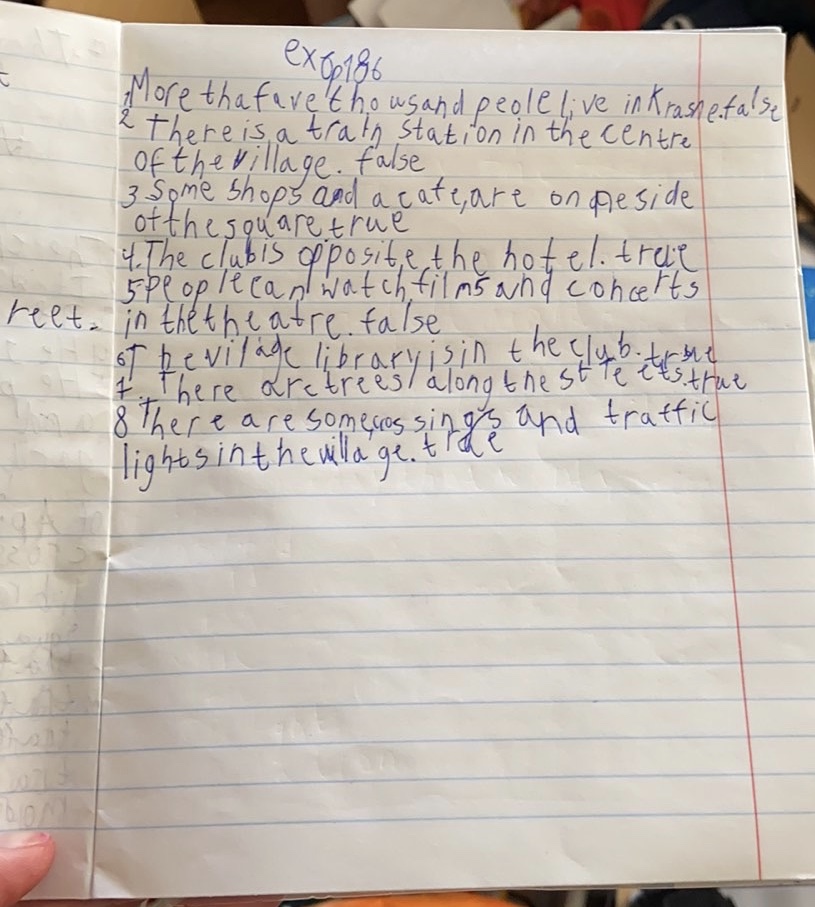 ex 6 p186
1 More tha fave thowsand peole live in Krashe. false
2 There is a train station in the centre
of the village. false
3 Some shops and a cafe, are on one side
of the square true
4. The club is opposite the hotel. true
5 people can watch films and concerts
reet.
in thetheatre. false
6 The vilage library is in the club. true
7. There are trees along the streets. true
8 There are some cros sings and traffic
lights in the village. true